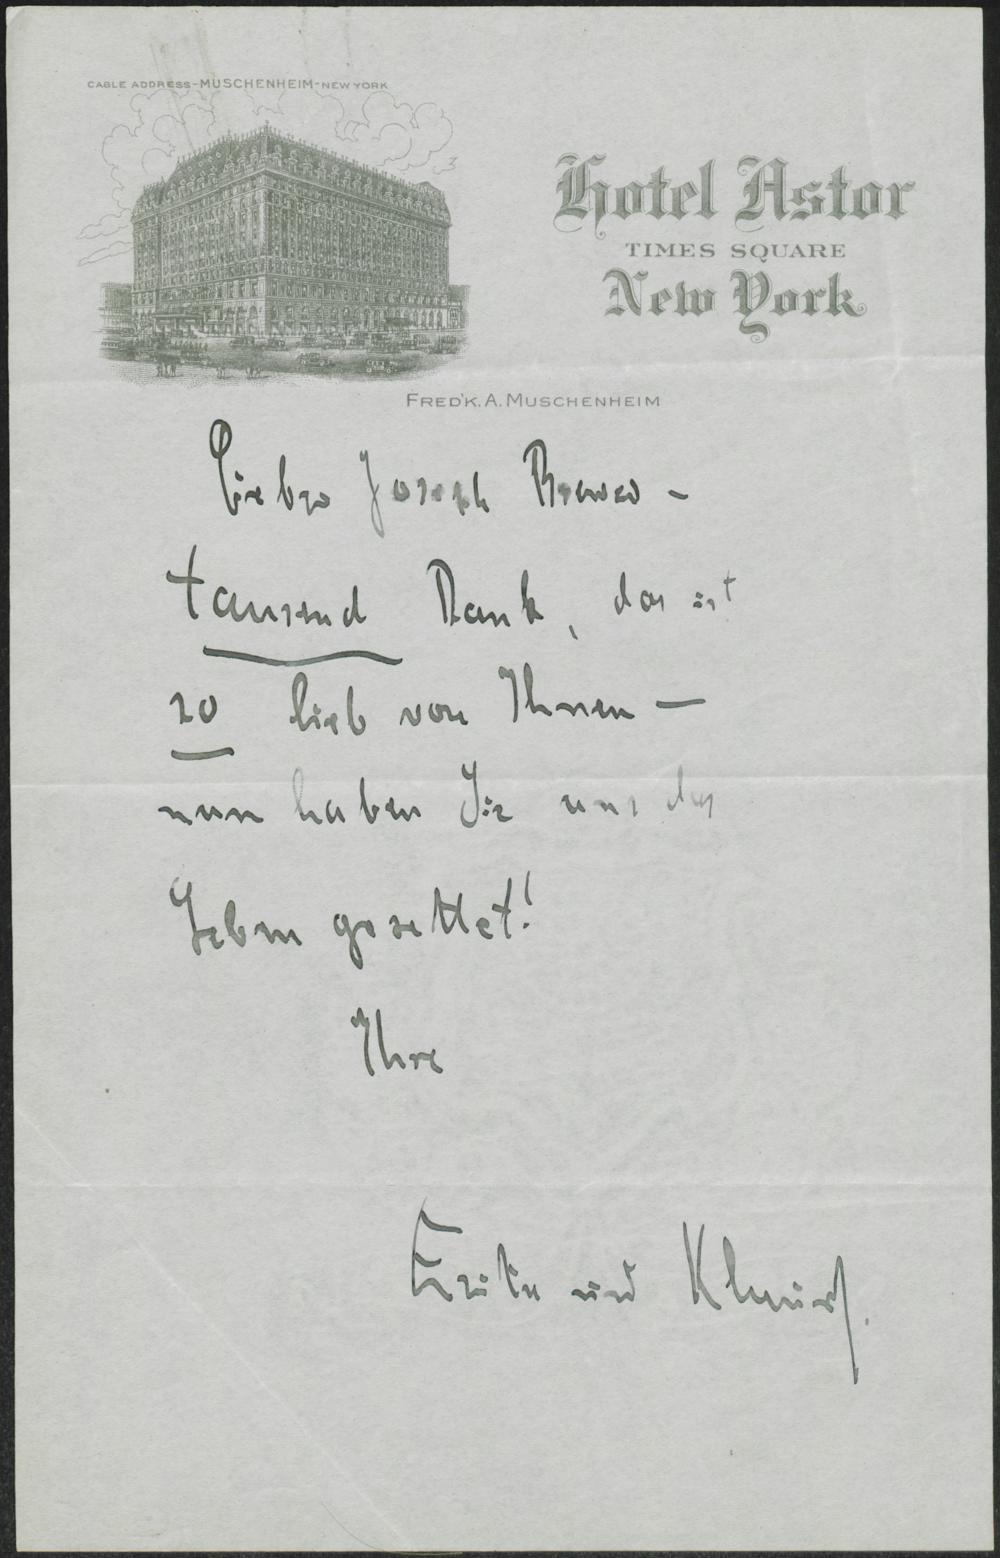 CABLE ADDRESS-MUSCHENHEIM-NEW YORK
Hotel Astor
TIMES SQUARE
New York
FRED'K. A. MUSCHENHEIM
Lieber Joseph Brewer –
tausend Dank, das ist
so lieb von Ihnen –
nun haben Sie uns das
Leben gerettet!
Ihre
Erika und Klaus.